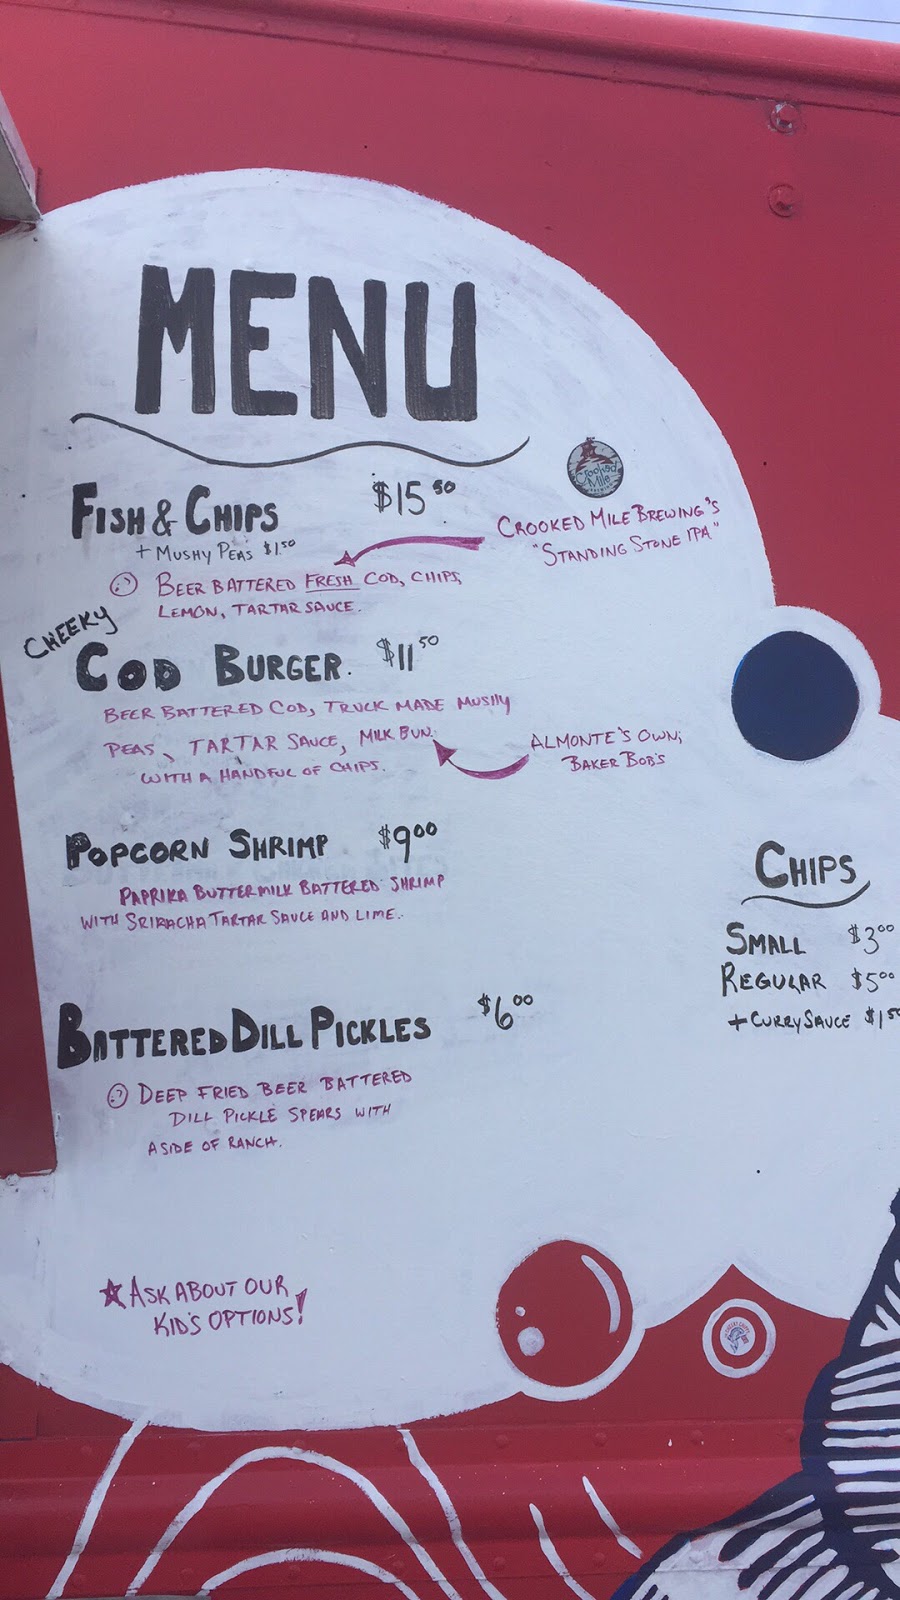 MENU
Crooked
Mile
FISH & CHIPS $15.50
+ MUSHY PEAS $1.50
CROOKED MILE BREWING'S
"STANDING STONE IPA"
BEER BATTERED FRESH COD, CHIPS,
LEMON, TARTAR SAUCE.
CHEEKY
COD BURGER. $11.50
BEER BATTERED COD, TRUCK MADE MUSHY
PEAS, TARTAR SAUCE, MILK BUN.
WITH A HANDFUL OF CHIPS.
ALMONTE'S OWN;
BAKER BOB'S
POPCORN SHRIMP $9.00
PAPRIKA BUTTERMILK BATTERED SHRIMP
WITH SRIRACHA TARTAR SAUCE AND LIME.
BATTERED DILL PICKLES $6.00
DEEP FRIED BEER BATTERED
DILL PICKLE SPEARS WITH
A SIDE OF RANCH.
CHIPS
SMALL $3.00
REGULAR $5.00
+ CURRY SAUCE $1.50
ASK ABOUT OUR
KID'S OPTIONS!